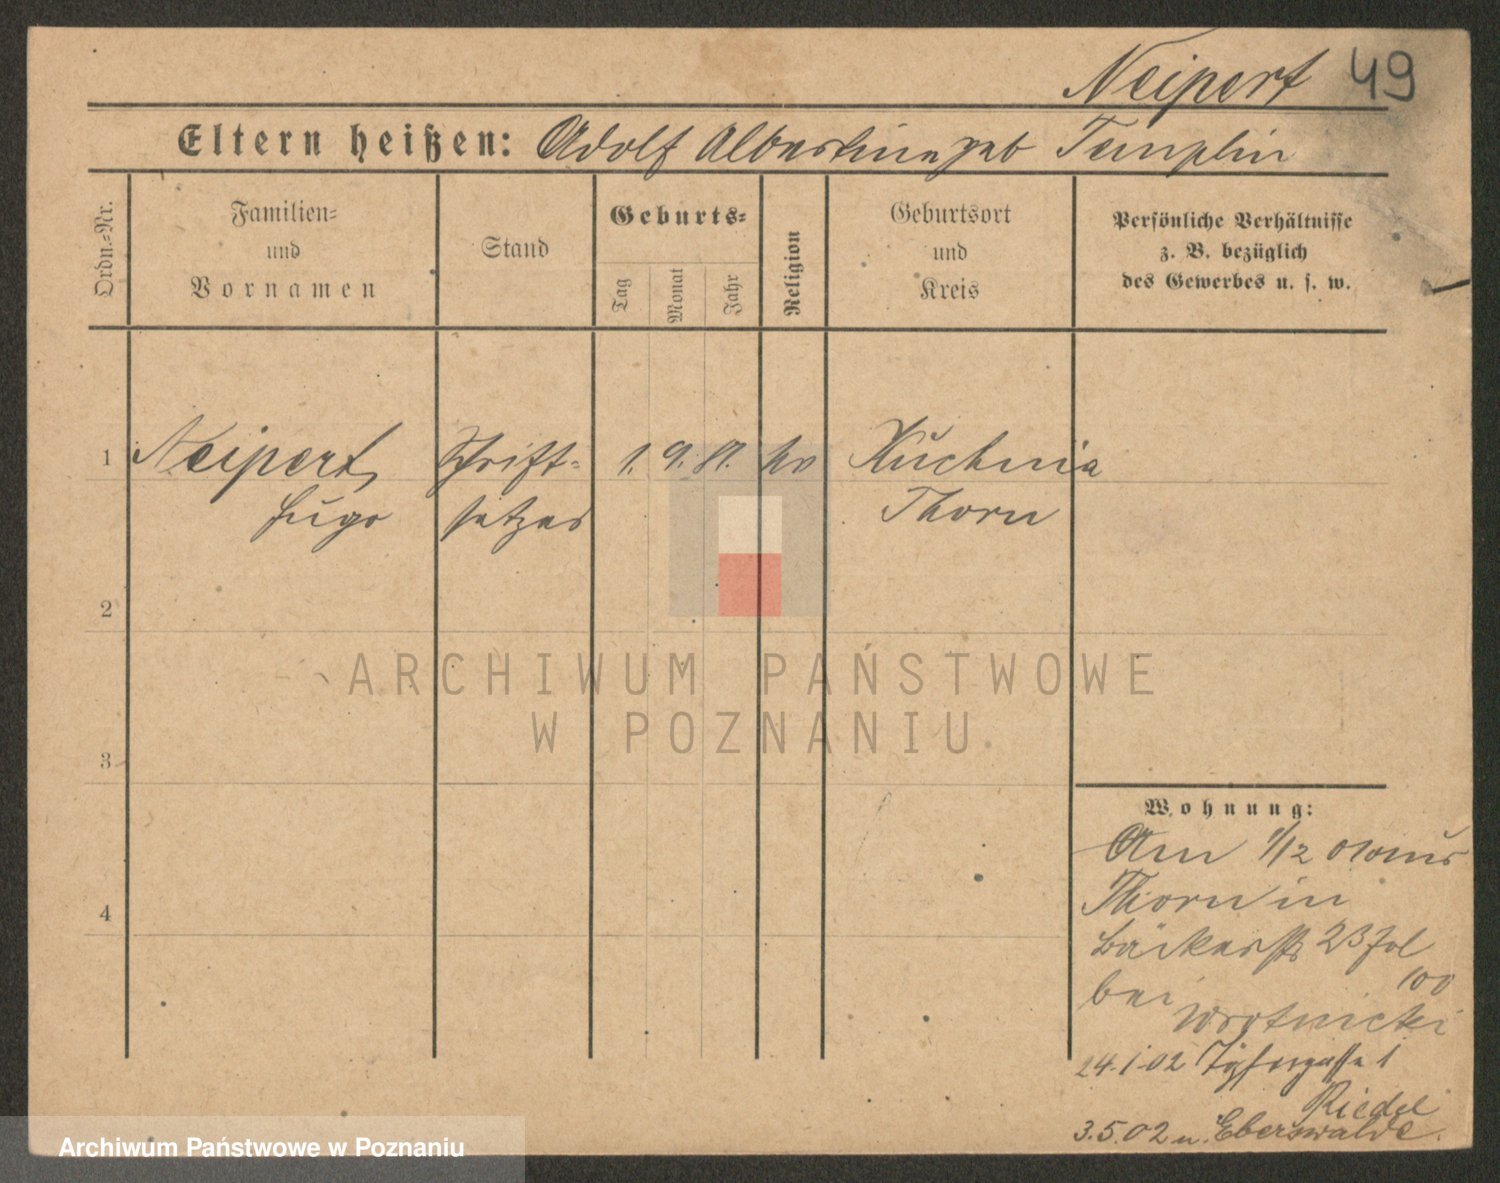 Neipert 49
Eltern heißen: Adolf Albertine geb Templin
Ordn.-Nr.
Familien-
und
Vornamen
Stand
Geburts-
Tag
Monat
Jahr
Religion
Geburtsort
und
Kreis
Persönliche Verhältnisse
z. B. bezüglich
des Gewerbes u. s. w.
1 Neipert, Schrift- 1. 9. 81. ev Kuchnia
Hugo setzer Thorn
2
3
4
ARCHIWUM PAŃSTWOWE
W POZNANIU
Wohnung:
Am 1/12 01 aus
Thorn in
Bäckerstr 23
100
bei
Wrotnicki
24.1.02 1
Riedel
3.5.02 n. Eberswalde.
Archiwum Państwowe w Poznaniu